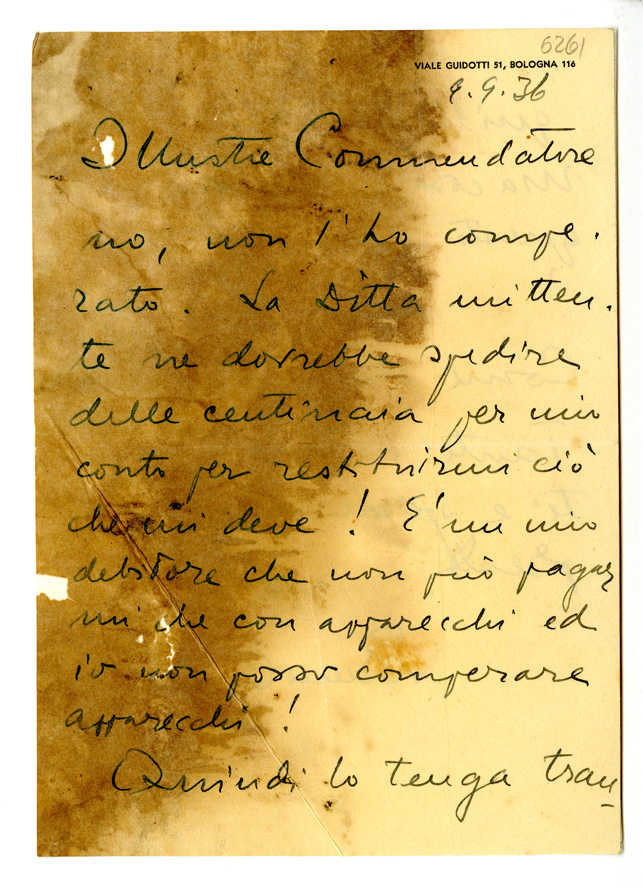 6261
VIALE GUIDOTTI 51, BOLOGNA 116
9.9.36
Illustre Commendatore
no, non l'ho compe-
rato. La Ditta mitten-
te ne dovrebbe spedire
delle centinaia per mio
conto per restituirmi ciò
che mi deve! È un mio
debitore che non può pagar
mi che con apparecchi ed
io non posso comperare
apparecchi!
Quindi lo tenga tran-